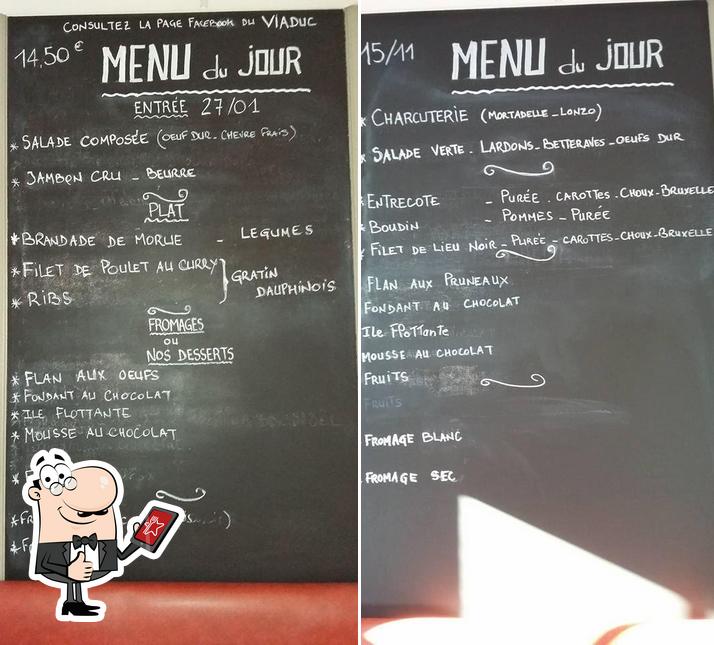 CONSULTEZ LA PAGE FACEBOOK DU VIADUC
14.50€ MENU du JOUR
ENTRÉE 27/01
* SALADE COMPOSÉE (OEUF DUR - CHEVRE FRAIS)
* JAMBON CRU - BEURRE
PLAT
* BRANDADE DE MORUE - LEGUMES
* FILET DE POULET AU CURRY
* RIBS
GRATIN
DAUPHINOIS
FROMAGES
OU
NOS DESSERTS
* FLAN AUX OEUFS
* FONDANT AU CHOCOLAT
* ILE FLOTTANTE
* MOUSSE AU CHOCOLAT
15/11 MENU du JOUR
* CHARCUTERIE (MORTADELLE - LONZO)
* SALADE VERTE - LARDONS - BETTERAVES - OEUFS DUR
* ENTRECOTE - PURÉE . CAROTTES . CHOUX - BRUXELLE
* BOUDIN - POMMES - PURÉE
* FILET DE LIEU NOIR - PURÉE - CAROTTES - CHOUX - BRUXELLE
FLAN AUX PRUNEAUX
FONDANT AU CHOCOLAT
ILE FLOTTANTE
MOUSSE AU CHOCOLAT
FRUITS
FRUITS
FROMAGE BLANC
FROMAGE SEC